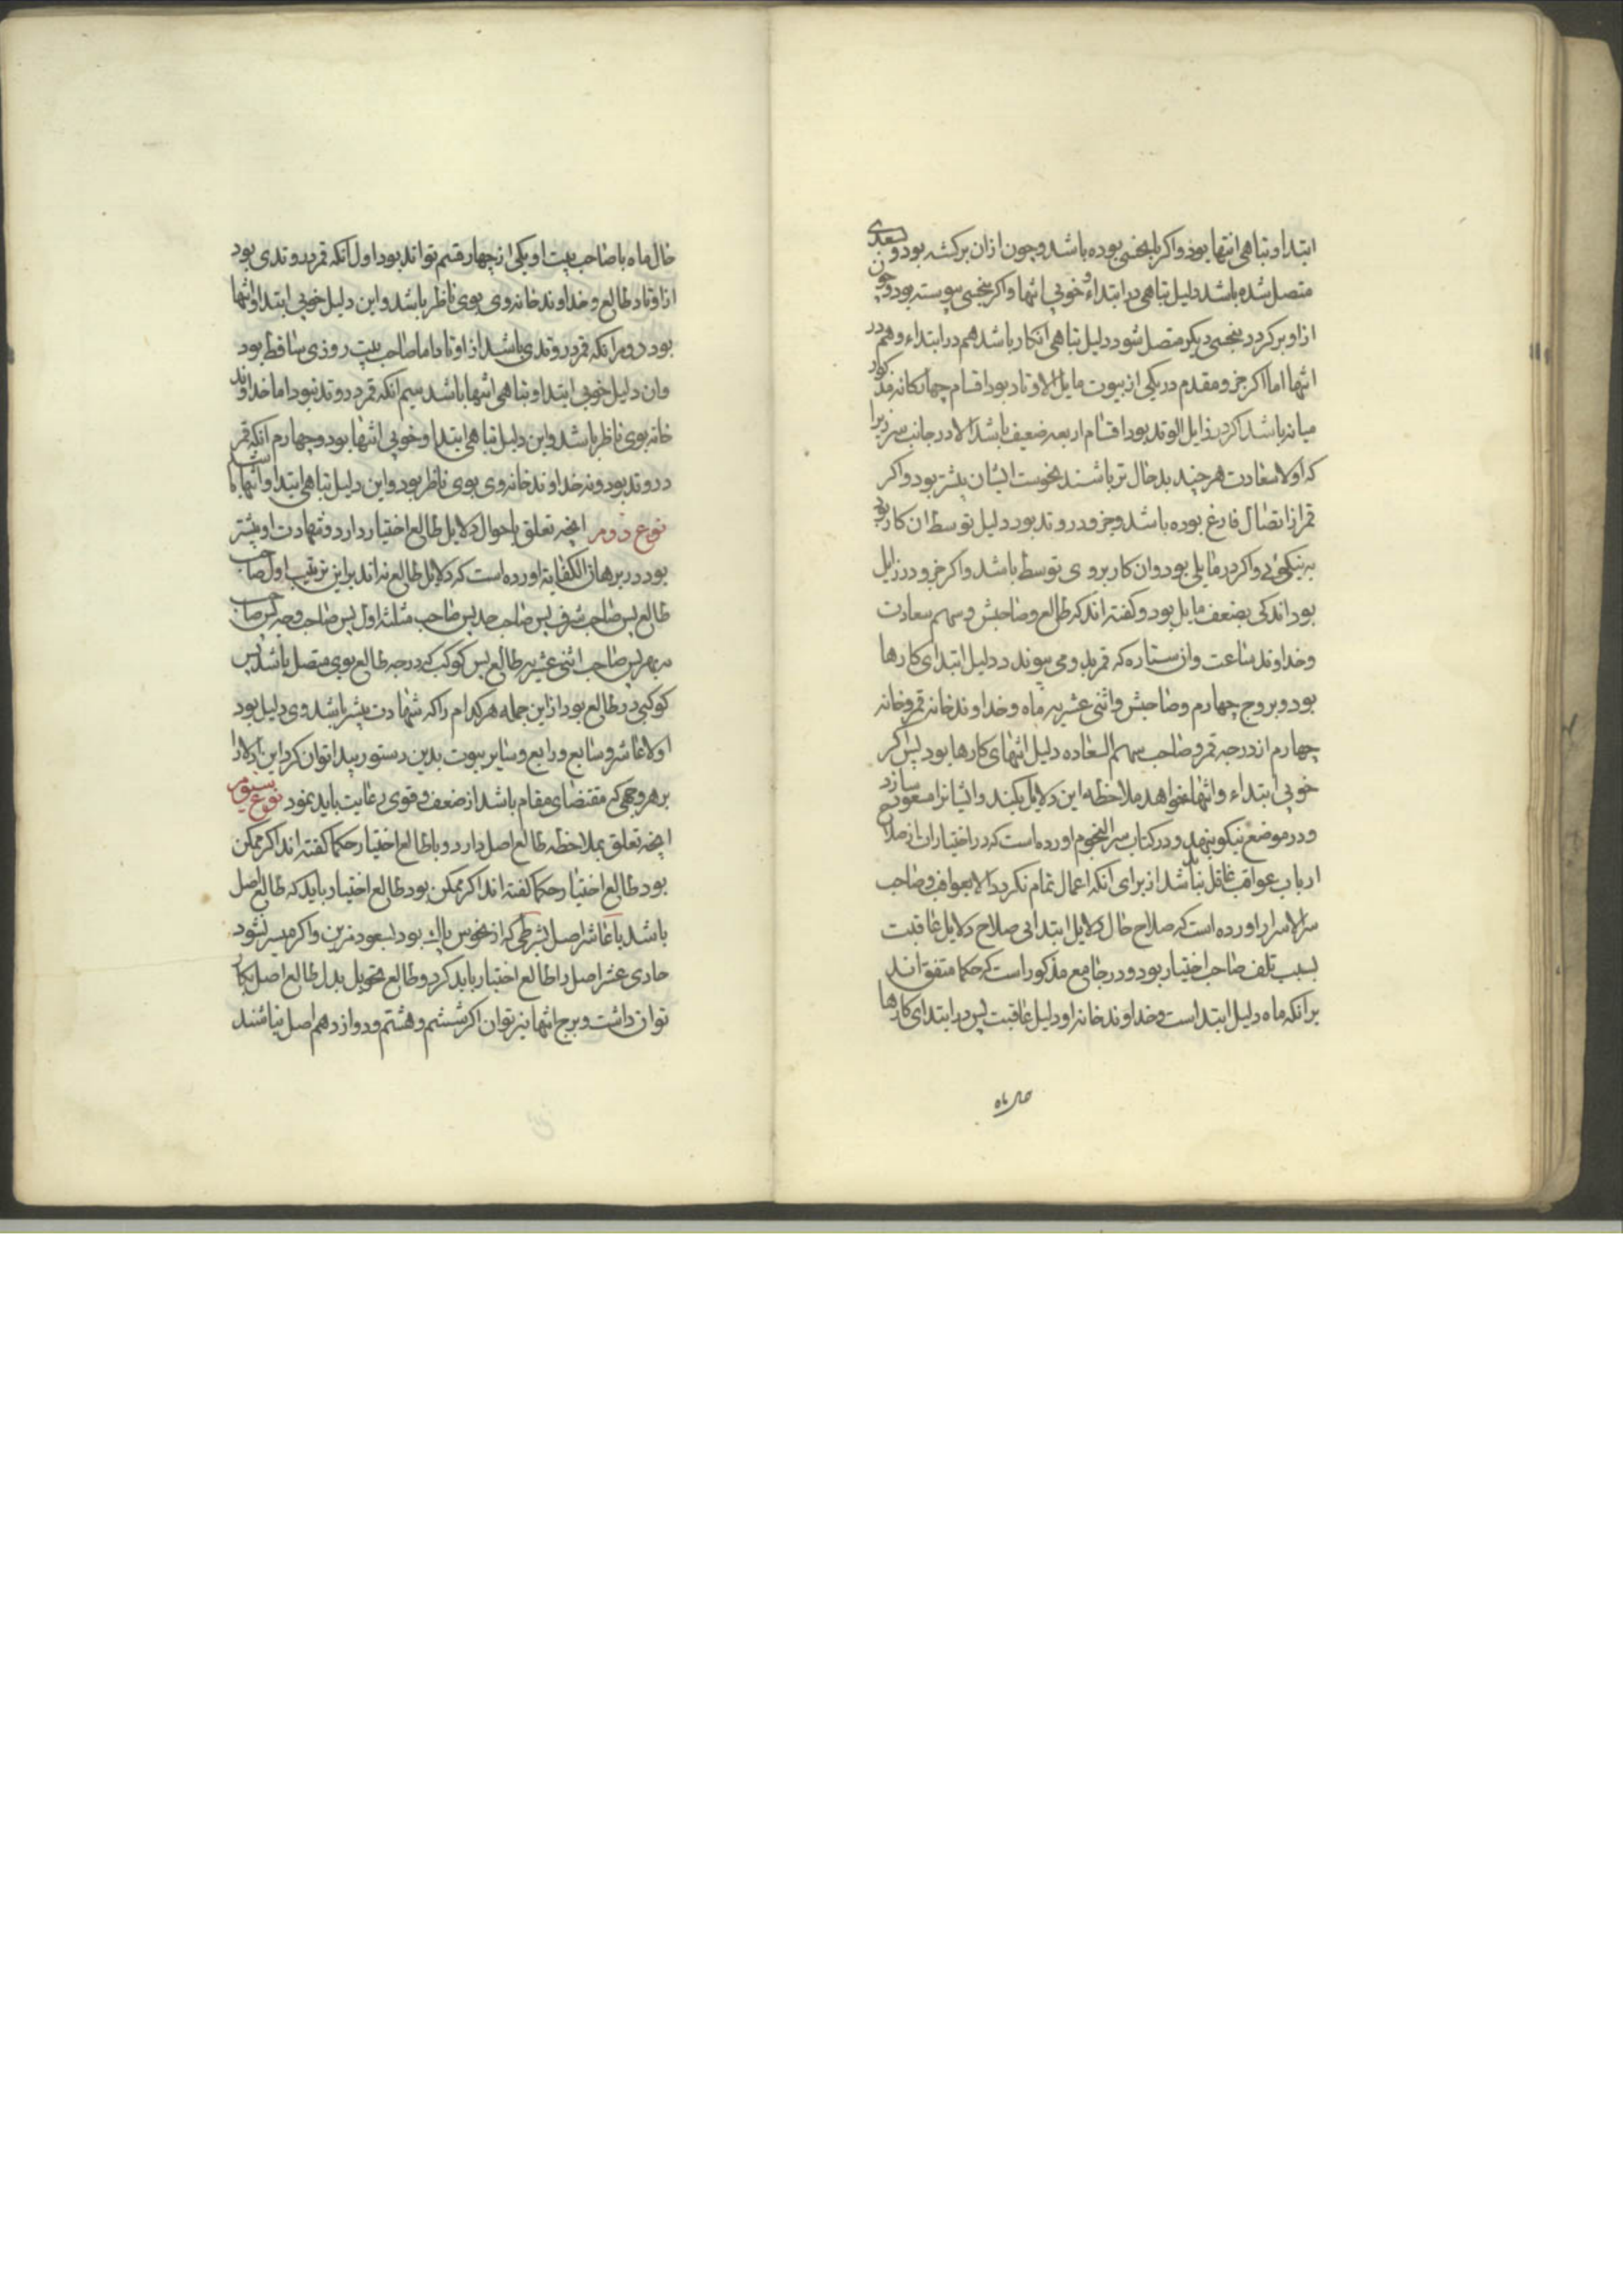 ابتدا و تباهی انتها بود و اکر با نحسی بوده باشد و چون ازان برکشته بود و بسعدی
متصل شده باشد دلیل تباهی در ابتداء و خوبی انتها و اکر بنحسی پیوسته بود و چون
ازاو برکردد بنحسی دیکر متصل شود دلیل تباهی انکار باشد هم در ابتداء و هم در
انتها اما اکر جزو مقدم در یکی از بیوت مایل الاوتاد بود اقسام چهارکانه مذکور
میانه باشد اکر در زایل الوتد بود اقسام اربعه ضعیف باشد الا در جانب سر زیرا
که اولا سعادت هرچند بدحال تر باشند نحوست ایشان بیشتر بود و اکر
قمر از اتصال فارغ بوده باشد و جزو در وتد بود دلیل توسط ان کار بود
به نیکوئی و اکر در مایلی بود وان کار بر وی توسط باشد و اکر جزو در زایل
بود اندکی بضعف مایل بود و کفته اند که طالع و صاحبش و سهم سعادت
و خداوند ساعت و از ستاره که قمر بدو می پیوندد دلیل ابتدای کارها
بود و بروج چهارم و صاحبش و اثنی عشریه ماه و خداوند خانه قمر و خانه
چهارم از درجه قمر و صاحب سهم السعاده دلیل انتهای کارها بود پس اکر
خوبی ابتداء و انتها خواهد ملاحظه این دلایل بکند و ایشانرا مسعود سازد
و در موضع نیکو بنهد و در کتاب سر النجوم اورده است که در اختیارات از صلاح
ارباب عواقب غافل نباید شد از برای انکه اعمال تمام نکردد الا بعواقب و صاحب
سر الاسرار اورده است که صلاح حال دلایل ابتدا بی صلاح دلایل عاقبت
بسبب تلف صاحب اختیار بود و در جامع مذکور است که حکما متفق اند
برانکه ماه دلیل ابتداست و خداوند خانه او دلیل عاقبت پس در ابتدای کارها
حال ماه
حال ماه با صاحب بیت او یکی از چهار قسم تواند بود اول انکه قمر در وتدی بود
از اوتاد طالع و خداوند خانه وی بوی ناظر باشد و این دلیل خوبی ابتدا و انتها
بود دوم انکه قمر در وتدی باشد از اوتاد اما صاحب بیت روزی ساقط بود
وان دلیل خوبی ابتدا و تباهی انتها باشد سیم انکه قمر در وتد نبود اما خداوند
خانه بوی ناظر باشد و این دلیل تباهی ابتدا و خوبی انتها بود و چهارم انکه قمر
در وتد بود و نه خداوند خانه وی بوی ناظر بود و این دلیل تباهی ابتدا و انتها باشد
نوع دوم انچه تعلق باحوال دلایل طالع اختیار دارد و شهادت او بیشتر
بود در برهان الکفایة اورده است که دلایل طالع نه اند براین ترتیب اول صاحب
طالع پس صاحب شرف پس صاحب حد پس صاحب مثلثه اول پس صاحب وجه پس صاحب
نهبهر پس صاحب اثنی عشریه طالع پس کوکب که درجه طالع بوی متصل باشد پس
کوکبی در طالع بود از این جمله هر کدام را که شهادت بیشتر باشد وی دلیل بود
اولا عاشر و سابع و رابع و سایر بیوت بدین دستور پیدا توان کرد این ادلا را
بر هر وجهی که مقتضای مقام باشد از ضعف و قوی رعایت باید نمود نوع سیوم
انچه تعلق بملاحظه طالع اصل دارد و با طالع اختیار حکما کفته اند اکر ممکن
بود طالع اختیار حکما کفته اند اکر ممکن بود طالع اختیار باید که طالع اصل
باشد یا عاشر اصل بشرطی که از نحوس پاک بود بسعود مزین و اکر میسر نشود
حادی عشر اصل را طالع اختیار باید کرد و طالع تحویل بدل طالع اصل بکار
توان داشت و برج انتها نیز توان اکر ششم و هشتم و دوازدهم اصل نباشند